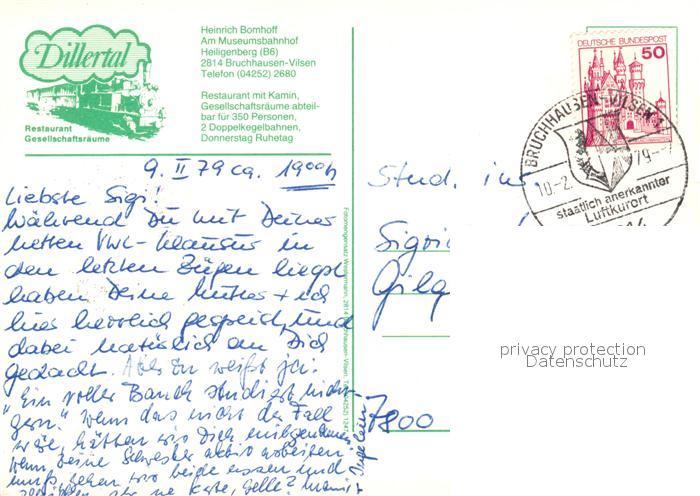 Dillertal
Restaurant
Gesellschaftsräume
Heinrich Bomhoff
Am Museumsbahnhof
Heiligenberg (B6)
2814 Bruchhausen-Vilsen
Telefon (04252) 2680
Restaurant mit Kamin,
Gesellschaftsräume abteil-
bar für 350 Personen,
2 Doppelkegelbahnen,
Donnerstag Ruhetag
9. II 79 ca. 1900h
Liebste Sigi!
Während Du mit Deiner
netten VWL-Klausur in
den letzten Zügen liegst
haben Deine Mutter + ich
hier herrlich gespeist, und
dabei natürlich an Dich
gedacht. Aber Du weißt ja:
"Ein voller Bauch studiert nicht
gern." Wenn das nicht der Fall
wäre, hätten wir Dich mitgenommen
wenn Deine Schwester
muß, gehen wir beide essen und
Karte, gelle?
DEUTSCHE BUNDESPOST
50
BRUCHHAUSEN-VILSEN 1
10-2. 79
staatlich anerkannter
Luftkurort
Stud. in
Sigri
Gilg
7800
privacy protection
Datenschutz